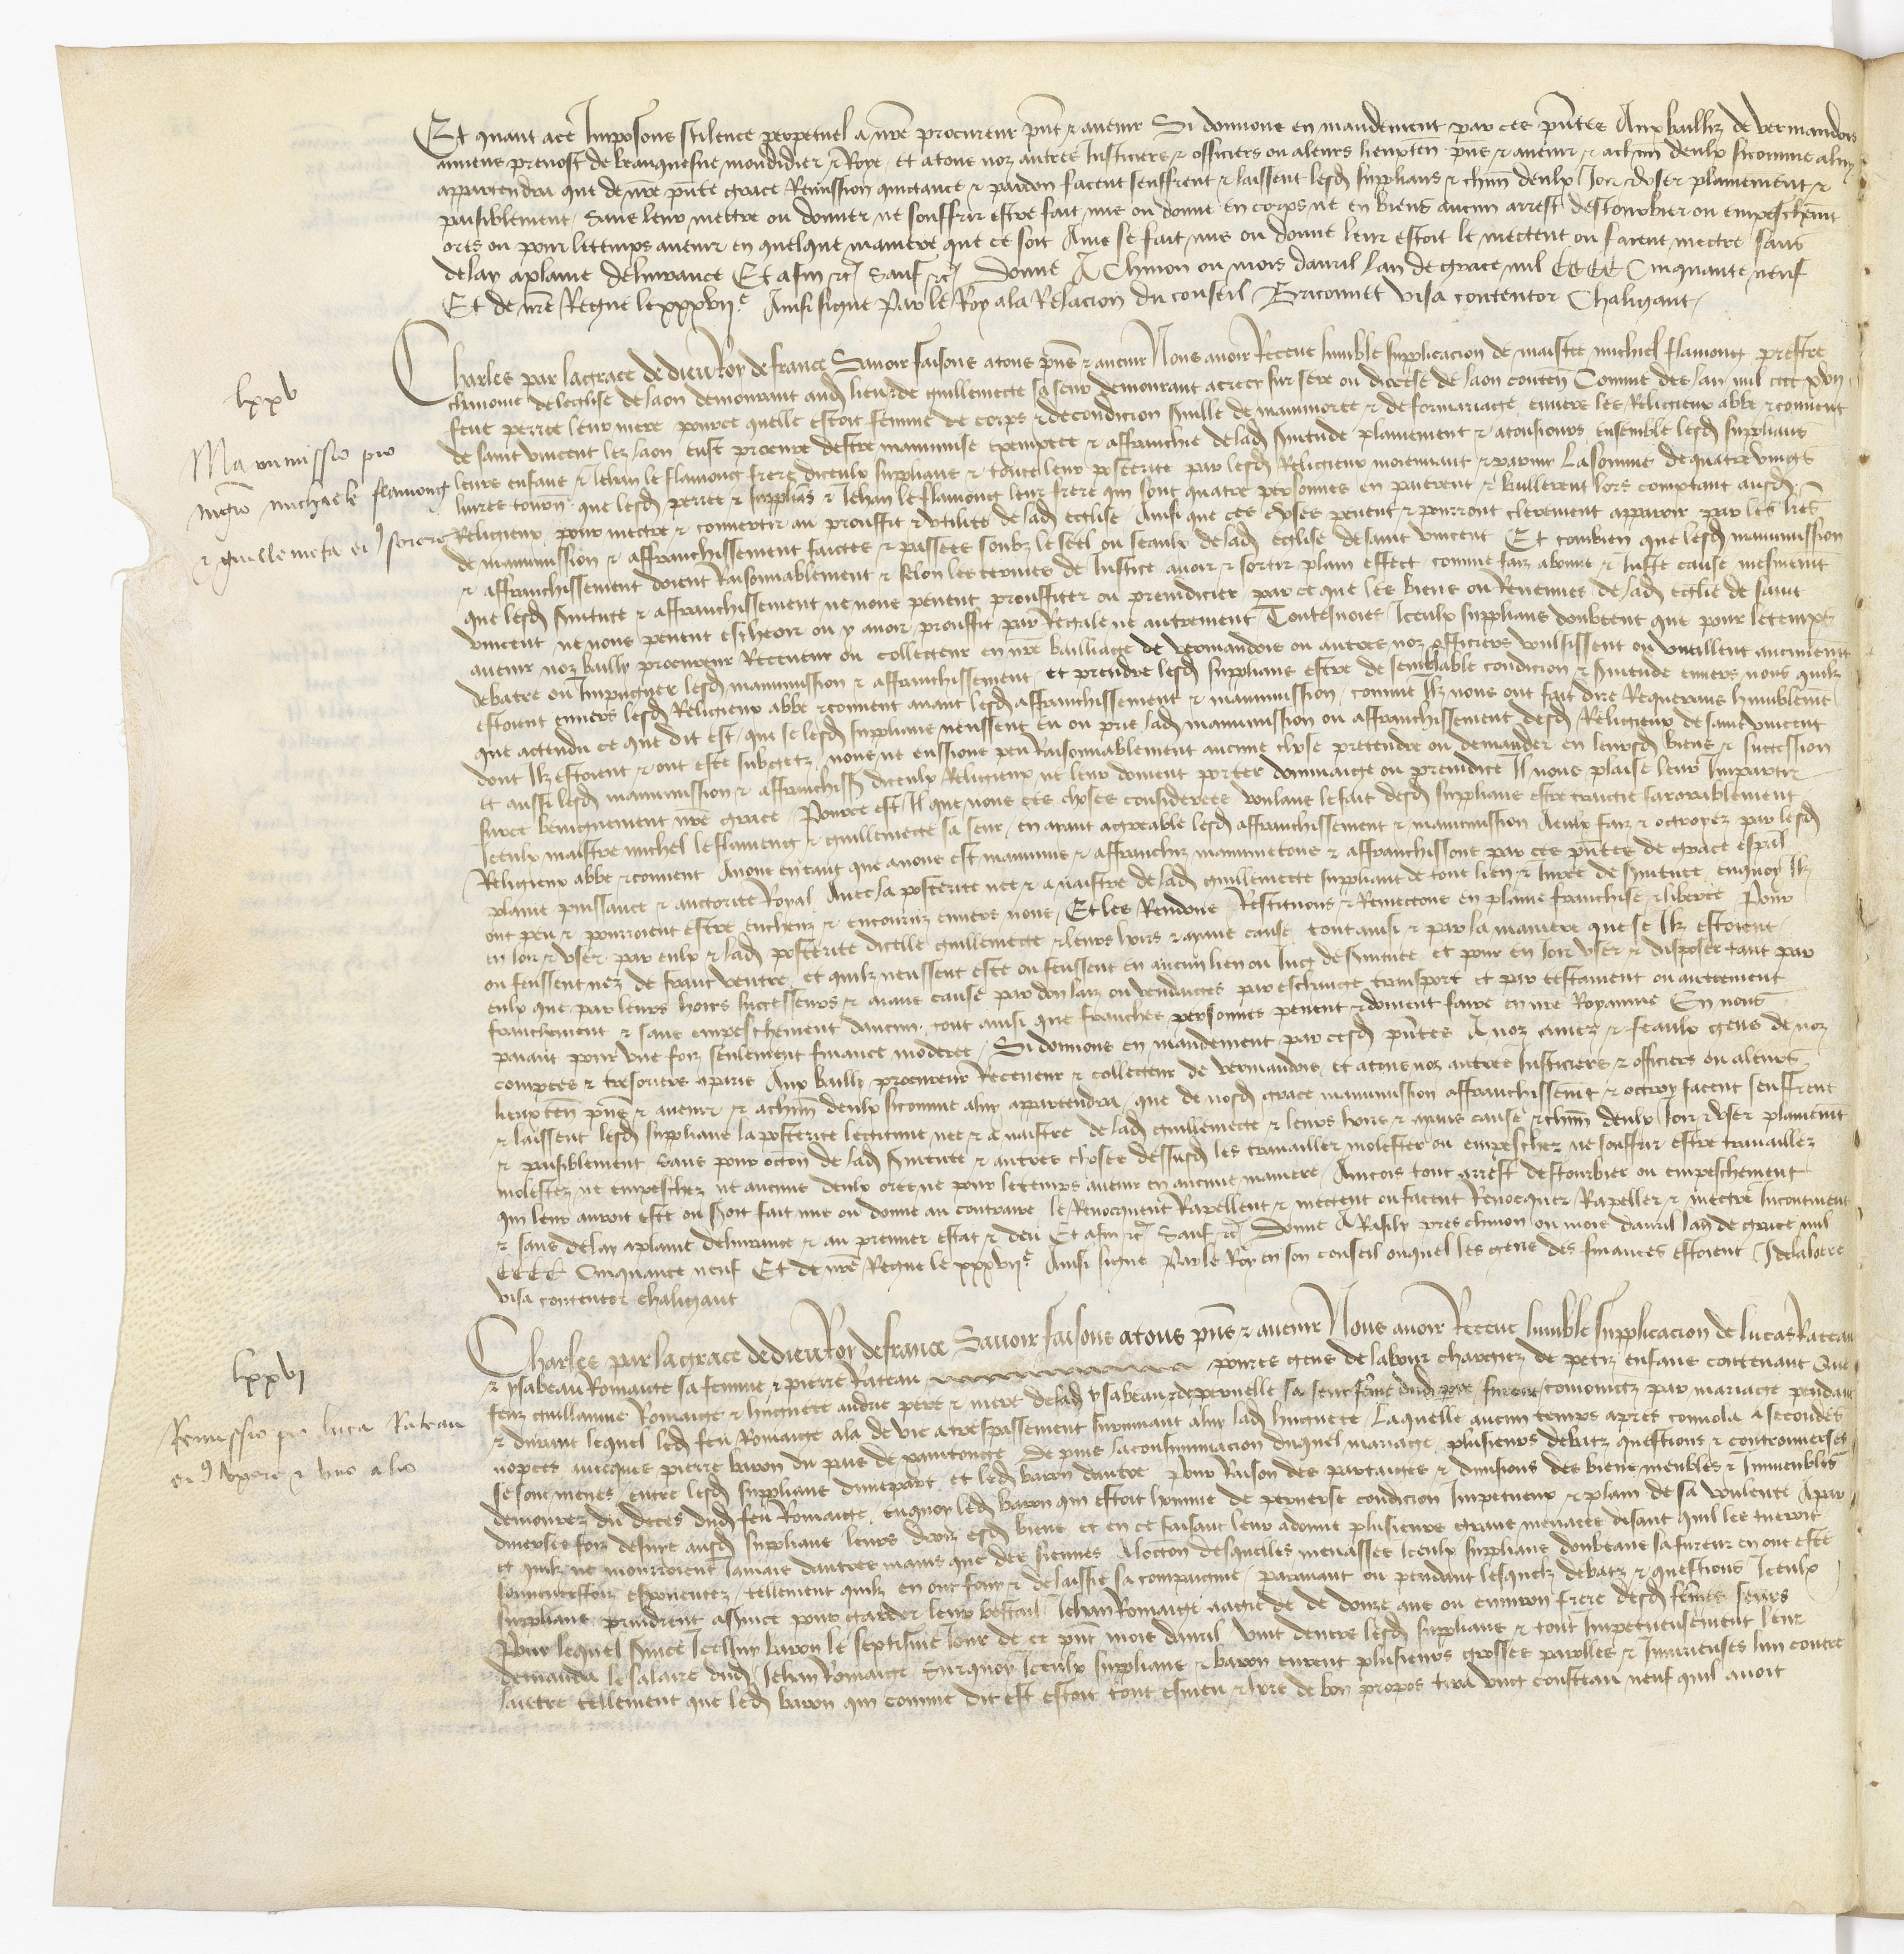 Et quant ace Imposons scilence perpetuel a nre procureur pnt & avenir Si donnons en mandement par ces pntes Aux bailliz de vermandois
amiens prevost de beauquesne mondidier & Roye et atous noz autres Justiciers & officiers ou aleurs lieuxten pns & avenir & achun deulx sicomme aluy
appartendra que de nre pnte grace Remission quictance & pardon facent seuffrent & laissent lesd supplians & chun deulx Joir & user plainement &
paisiblement Sans leur mettre ou donner ne souffrir estre fait mis ou donne en corps ne en biens aucun arrest destourbier ou empeschemt
ores ou pour letemps avenir en quelque maniere que ce soit Ains se fait mis ou donne leur estoit le mectent ou facent mectre sans
delay aplaine delivrance Et afin &c Sauf &c Donne A Chinon ou mois davril lan de grace mil CCCC Cinquante neuf
Et de nre Regne le xxxvije Ainsi signe Par le Roy ala Relacion du conseil Briconnet visa contentor Chaligaut
lxxv
Manumissio pro
magro michaele flamong
& guillemeta eiꝰ sorore
Charles par lagrace de dieu Roy de france Savoir faisons atous pns & avenir Nous avoir Receue humble supplicacion de maistre michiel flamong prestre
chanoine deleglise de laon demourant aud lieu & de guillemecte sa seur demourant acrecy sur sere ou diocese de laon conten Comme des lan mil cccc xvij
feue perree leur mere pource quelle estoit femme de corps & decondicion serville de mainmorte & de formariage envers les Religieux abbe & convent
de saint vincent lez laon eust procure destre manumise exemptee & affranchie delad servitude plainement & atousiours ensemble lesd supplians
leurs enfans & Jehan le flamong frere diceulx supplians & toute leur posterite par lesd Religieux moiennant & parmi Lasomme de quatre vings
livres tourn que lesd perree & supplians & Jehan le flamong leur frere qui sont quatre personnes en paierent & baillerent lors comptant ausd
Religieux pour mectre & convertir au prouffit & utilite de lad eglise Ainsi que ces choses pevent & pourront clerement apparoir par les lres
de manumission & affranchissement faictes & passees soubz le seel ou seaulx de lad eglise de saint vincent Et combien que lesd manumission
& affranchissement doient Raisonnablement & selon les termes de Justice avoir & sortir plain effect comme faiz abonne & Juste cause mesmemt
que lesd servitute & affranchissement ne nous pevent prouffiter ou preiudicier par ce que les biens ou Revenues de lad eglise de saint
vincent ne nous pevent escheoir ou y avoir prouffit par Regale ne autrement Toutesvoies Iceulx supplians doubtent que pour letemps
avenir noz bailly procureur Receveur ou collecteur en nre bailliage de vermandois ou autres noz officiers voulsissent ou vueillent aucunemt
debatre ou Impugner lesd manumission & affranchissement et prendre lesd supplians estre de semblable condicion & servitude envers nous quilz
estoient envers lesd Religieux abbe & convent avant lesd affranchissement & manumission comme Ilz nous ont fait dire Requerans humblemt
que actendu ce que dit est que se lesd supplians neussent eu ou prise lad manumission ou affranchissement desd Religieux de saint vincent
dont Ilz estoient & ont este subgetz nous ne eussions peu Raisonnablement aucune chose pretendre ou demander en leursd biens & succession
et aussi lesd manumission & affranchiss diceulx Religieux ne leur doivent porter dommaige ou preiudice Il nous plaise leur Impartir
surce benignement nre grace Pource est Il que nous ces choses considerees voulans lefait desd supplians estre traictie favorablement
Iceulx maistre michiel leflameng & guillemecte sa seur en ayant agreable lesd affranchissement & manumission Aeulx faiz & octroyez par lesd
Religieux abbe & convent Avons entant que anous est manumis & affranchiz manumetons & affranchissons par ces pntes de grace espal
plaine puissance & auctorite Royal Avec la posterite nee & a naistre de lad guillemecte suppliant de tout lien & Jucg de servitute enquoy Ilz
ont peu & pourroient estre encheuz & encouruz envers nous Et les Rendons Restituons & Remectons en plaine franchise & liberte Pour
en Joir & user par eulx & lad posterite dicelle guillemecte & leurs hoirs & ayans cause tout ainsi & par la maniere que se Ilz estoient
ou feussent nez de franc ventre et quilz neussent este ou feussent en aucun lien ou Jucg de servitute et pour en Joir user & disposer tant par
eulx que par leurs hoirs successeurs & aians cause par don laiz ou vendaiges par eschange transport et par testament ou autrement
franchement & sans empeschement daucun tout ainsi que franches personnes pevent & doivent faire en nre Royaume En nous
paiant pour une foiz seulement finance moderee Si donnons en mandement par cesd pntes A noz amez & feaulx gens de noz
comptes & tresoriers aparis Aux bailly procureur Receveur & collecteur de vermandois et atous noz autres Justiciers & officiers ou aleurs
lieuxten pns & avenir & achun deulx sicomme aluy appartendra que de nosd grace manumission affranchissemt & octroy facent seuffrent
& laissent lesd supplians laposterite legitime nee & a naistre de lad guillemecte & leurs hoirs & ayans cause & chun deulx Joir & user plainemt
& paisiblement Sans pour occon de lad servitute & autres choses dessusd les travailler molester ou empeschez ne souffrir estre travaillez
molestez ne empeschez ne aucuns deulx ores ne pour letemps avenir en aucune maniere Aincois tout arrest destourbier ou empeschement
qui leur auroit este ou seroit fait mis ou donne au contraire le Revocquent Rapellent & mectent ou facent Revocquer Rapeller & mectre Incontinent
& sans delay aplaine delivrance & au premier estat & deu Et afin &c Sauf &c Donne A Rasily pres chinon ou mois davril lan de grace mil
CCCC Cinquante neuf Et de nre Regne le xxxvije Ainsi signe Par le Roy en son conseil ouquel les gens des finances estoient J delaloere
visa contentor chaligaut
lxxvj
Remissio pro luca Rateau
eiꝰ uxore & uno alio
Charles par lagrace de dieu Roy de france Savoir faisons atous pns & avenir Nous avoir Receue humble supplicacion de lucas Rateau
& ysabeau Romaigne sa femme & pierre Rateau povres gens de labour chargiez de petiz enfans contenant Que
feuz guillaume Romaige & huguete andree pere & mere delad ysabeau & de pernelle sa seur feme dud pierre furent conioinctz par mariage pendant
& durant lequel led feu Romaige ala de vie atrespassement survivant aluy lad huguete Laquelle aucun temps apres convola a secondes
nopces avecques pierre baron du pais de xantonge De puis laconsummacion duquel mariage plusieurs debatz questions & controverses
se sont menes entre lesd supplians dunepart et led baron dautre Pour Raison des partaiges & divisions des biens meubles & Immeubles
demourez du deces dud feu Romaige enquoy led baron qui estoit homme de perverse condicion Impetueux & plain de sa voulente Apar
diverses foiz desnye ausd supplians leurs droiz esd biens et en ce faisant leur adonne plusieurs grans menaces disant quil les tueroit
et quilz ne mourroient Jamais dautres mains que des siennes Aloccon desquelles menasses Iceulx supplians doubtans safureur en ont este
souventesfois espoventez tellement quilz en ont fouy & delaissie sa compaignie paravant ou pendant lesquelz debatz & questions Iceulx
supplians prindrent aservice pour garder leur bestail Jehan Romaige aagie de de douze ans ou environ frere desd femes seurs
Pour lequel service Icelluy baron le septiesme Jour de ce pnt mois davril vint devers lesd supplians & tout Impetueusement leur
demanda le salaire dud Jehan Romaige Surquoy Iceulx supplians & baron eurent plusieurs grosses parolles & Iniurieuses lun contre
lautre tellement que led baron qui comme dit est estoit tout esmeu & yvre de bon propos tira ung cousteau neuf quil avoit